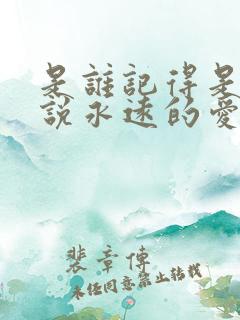 是誰記得是
說永遠的愛
裴章傳
未经同意禁止转载